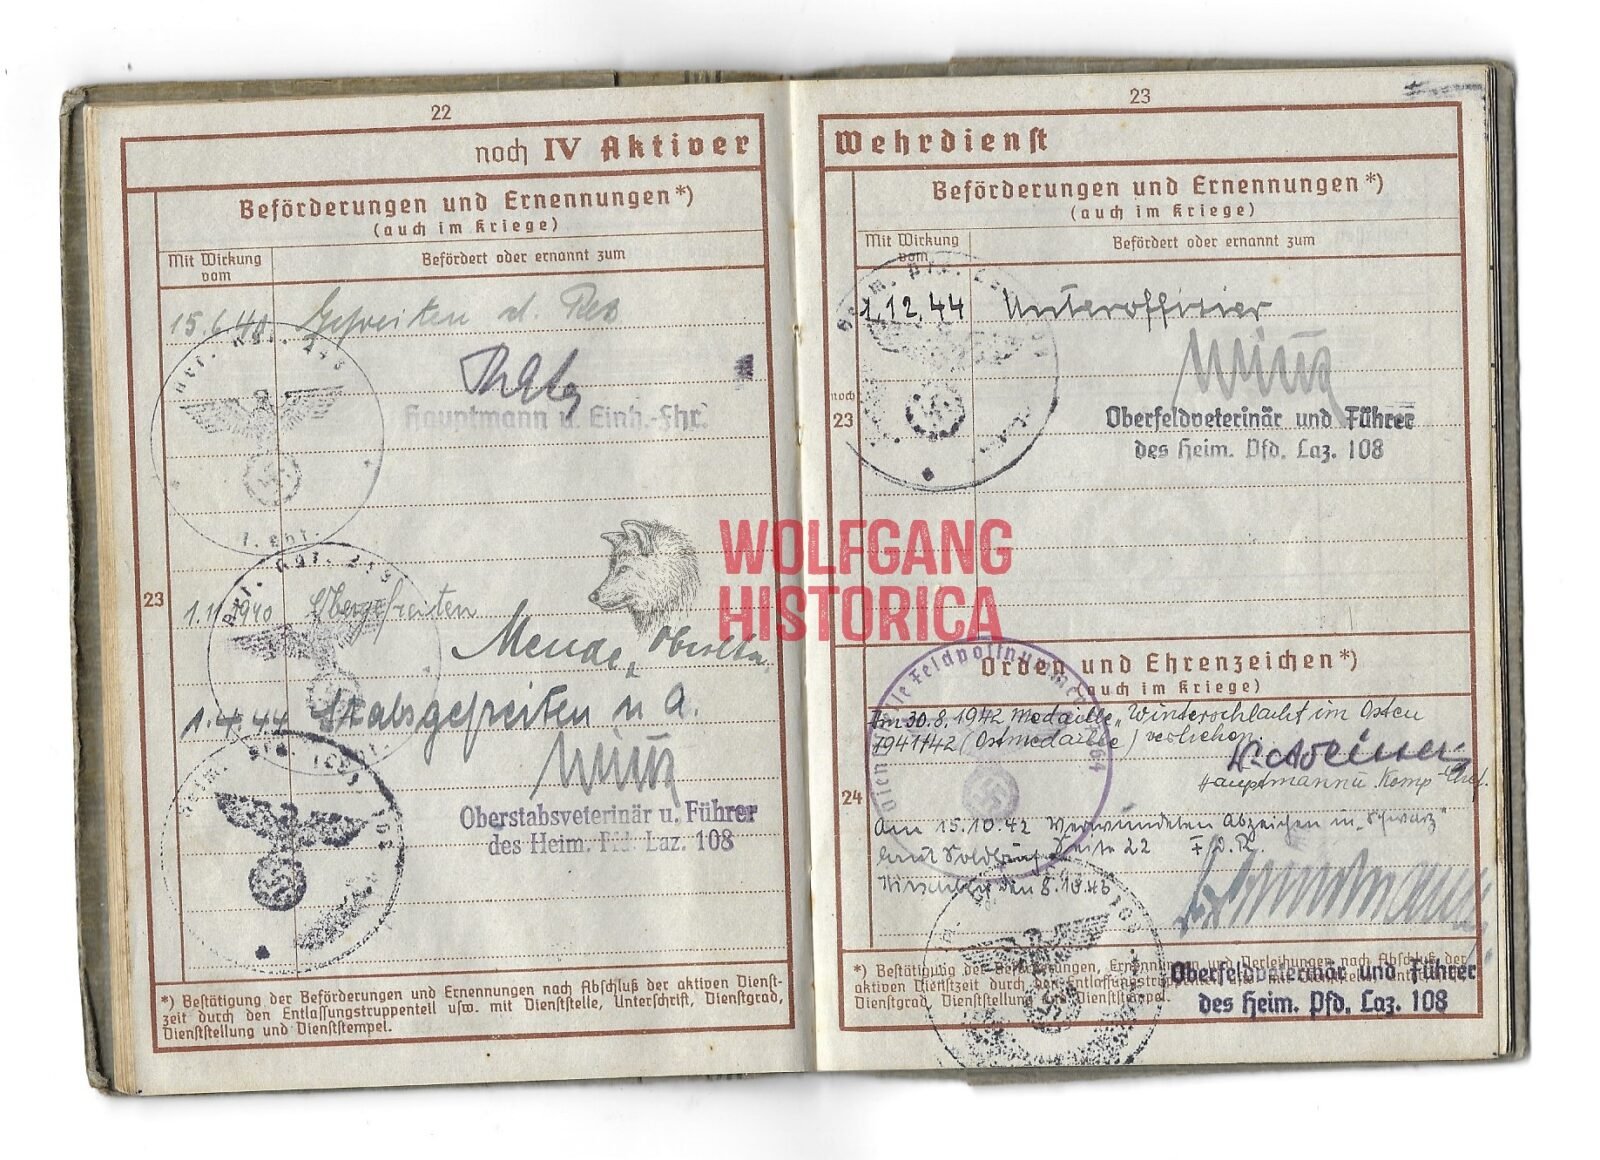 22
noch IV Aktiver
Beförderungen und Ernennungen*)
(auch im Kriege)
Mit Wirkung
vom
Befördert oder ernannt zum
15.6.40 Gefreiten d. Res
Hauptmann u. Einh.-Fhr.
Art. Rgt.
1. Abt.
23
1.11.1940 Obergefreiten
Art. Rgt.
1.4.44 Stabsgefreiten u A.
Oberstabsveterinär u. Führer
des Heim. Pfd. Laz. 108
*) Bestätigung der Beförderungen und Ernennungen nach Abschluß der aktiven Dienst-
zeit durch den Entlassungstruppenteil usw. mit Dienststelle, Unterschrift, Dienstgrad,
Dienststellung und Dienststempel.
23
Wehrdienst
Beförderungen und Ernennungen*)
(auch im Kriege)
Mit Wirkung
vom
Befördert oder ernannt zum
1.12.44 Unteroffizier
noch
23
Oberfeldveterinär und Führer
des Heim. Pfd. Laz. 108
WOLFGANG
HISTORICA
Orden und Ehrenzeichen*)
(auch im Kriege)
Am 30.8.1942 Medaille „Winterschlacht im Osten
1941/42 (Ostmedaille) verliehen.
Hauptmann u. Komp-Chef.
24
Am 15.10.42 Verwundeten Abzeichen in „Schwarz"
laut Seite 22
den
*) Bestätigung der Beförderungen, Ernennungen und Verleihungen nach Abschluß der
aktiven Dienstzeit durch den Entlassungstruppenteil
Dienstgrad, Dienststellung und Dienststempel.
Oberfeldveterinär und Führer
des Heim. Pfd. Laz. 108